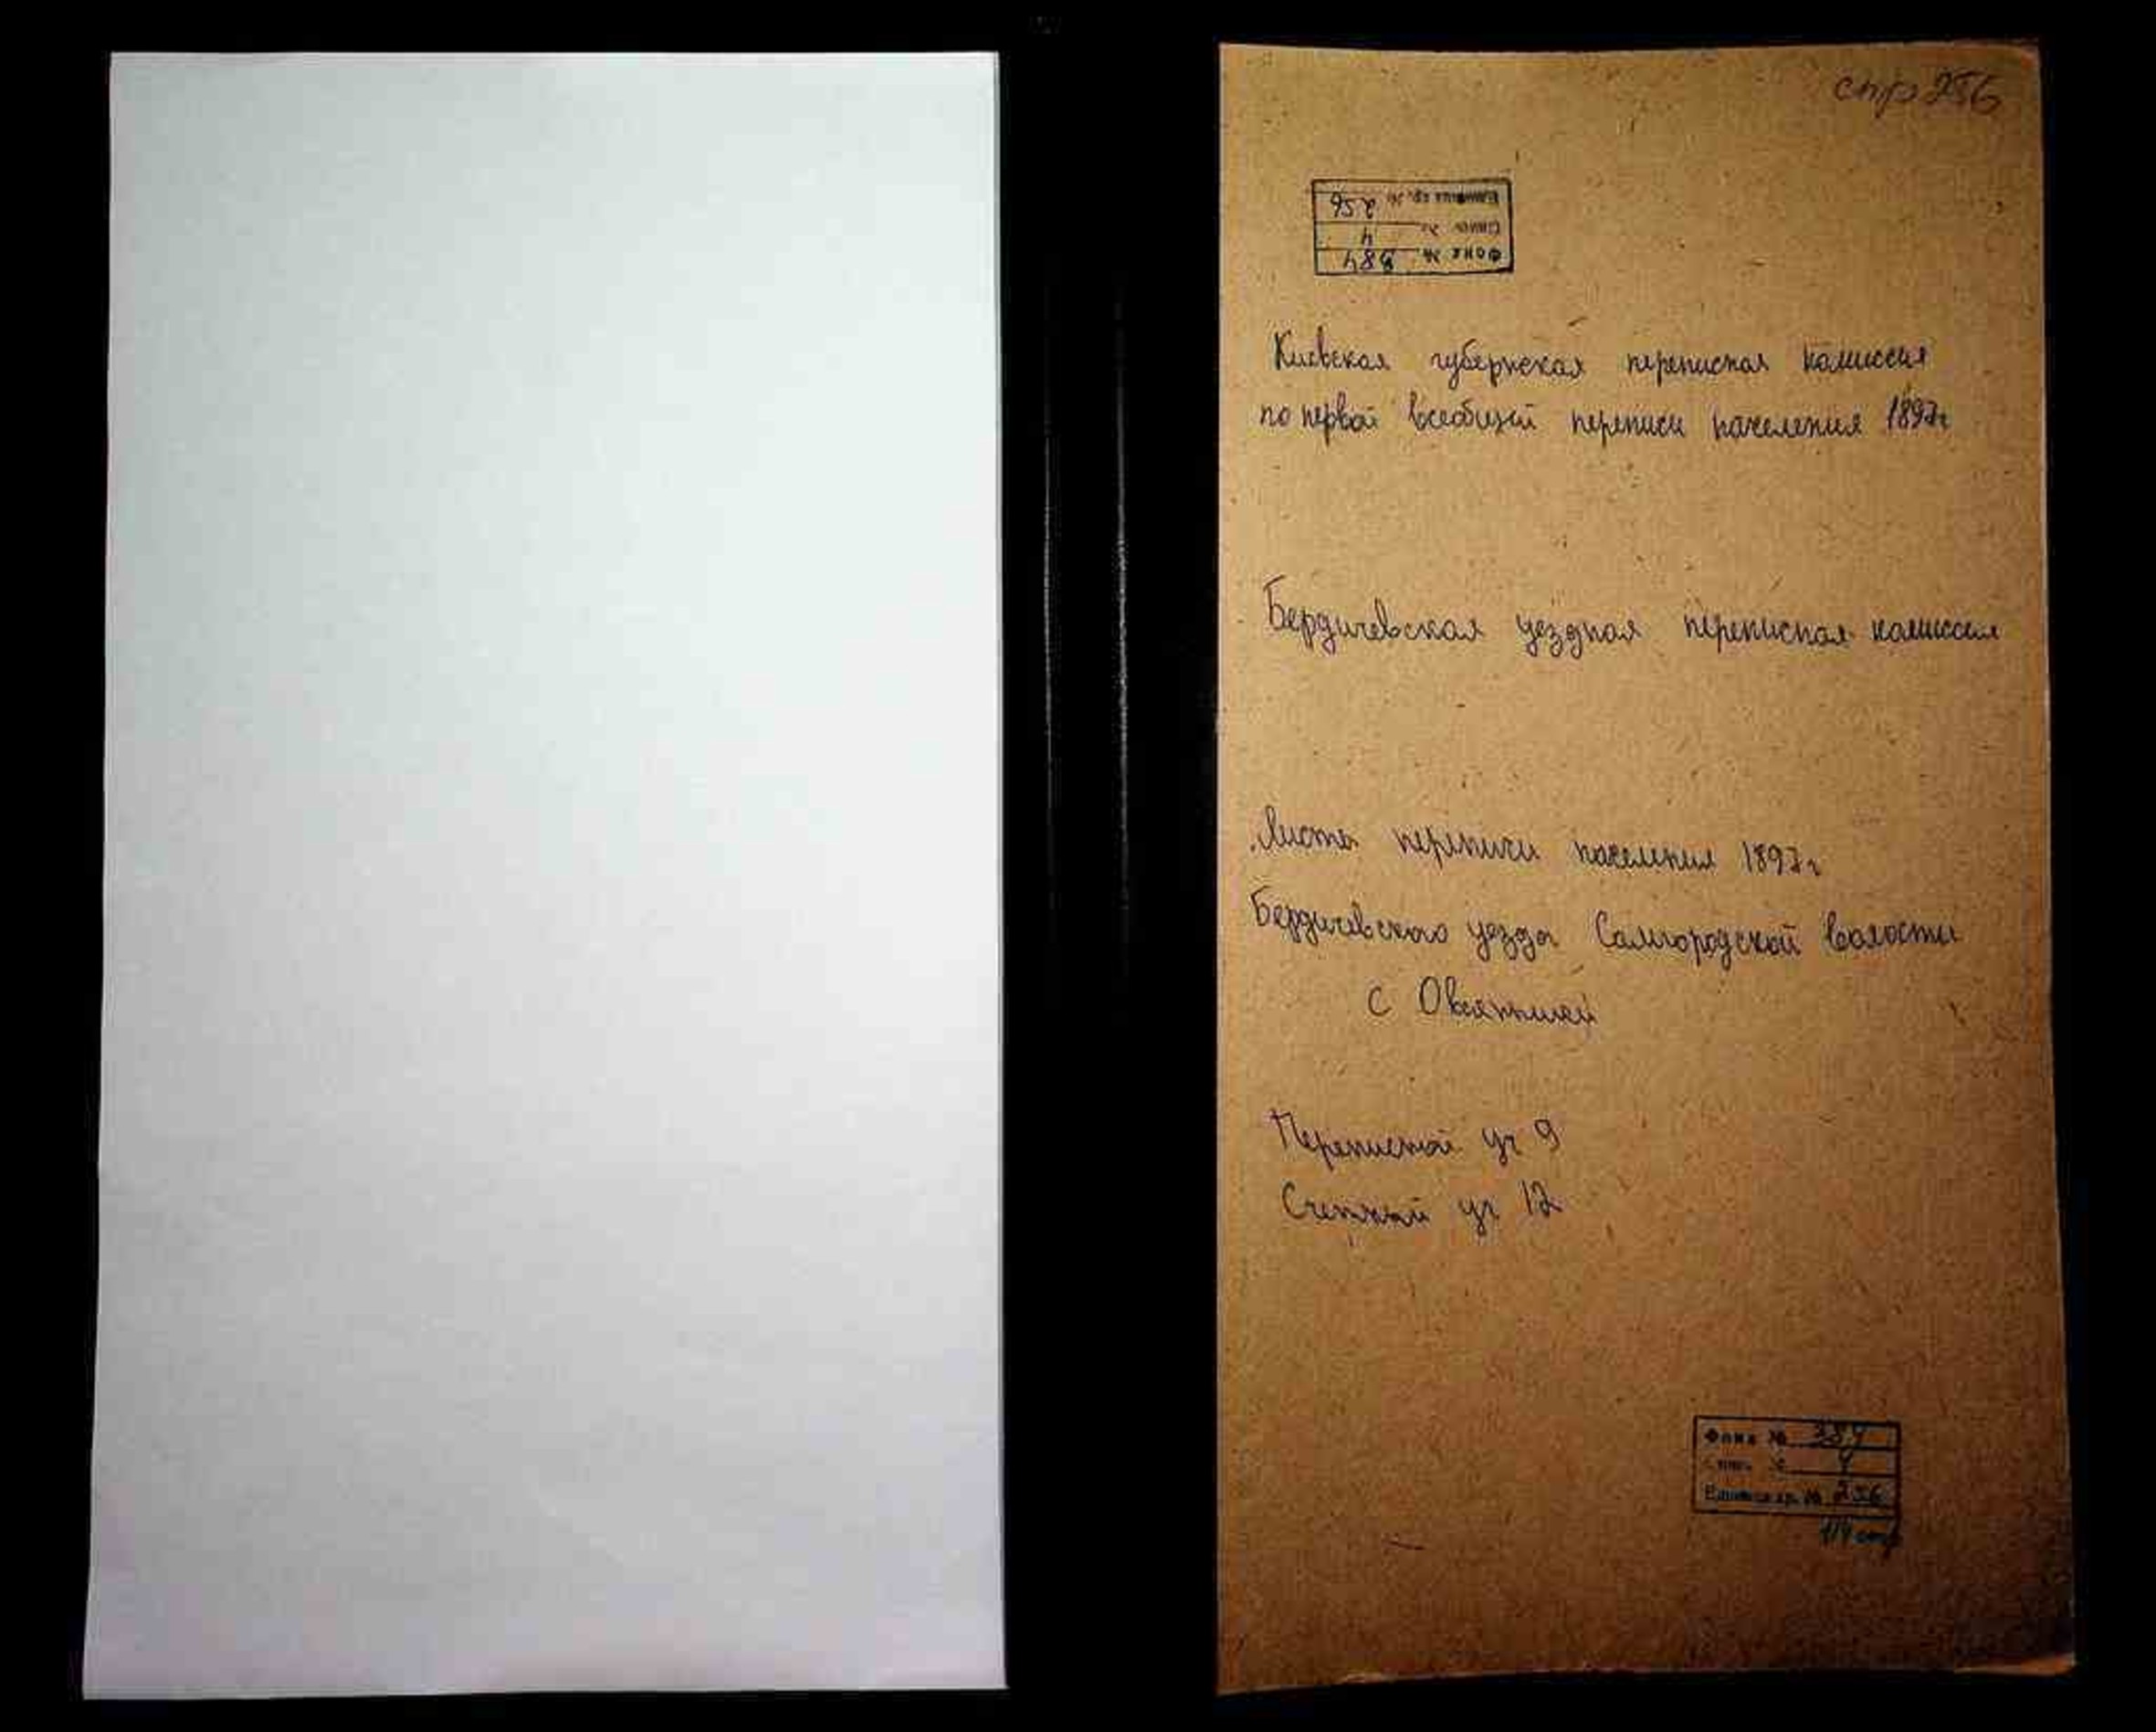 стр 256
Единица хр. № 256
Опись № 4
Фонд № 384
Киевская губернская переписная комиссия
по первой всеобщей переписи населения 1897г
Бердичевская уездная переписная комиссия
Листы переписи населения 1897г
Бердичевского уезда Самгородской волости
С Овсянники
Переписной уч 9
Счетный уч 12
Фонд № 384
Опись № 4
Единица хр. № 256
114 стр